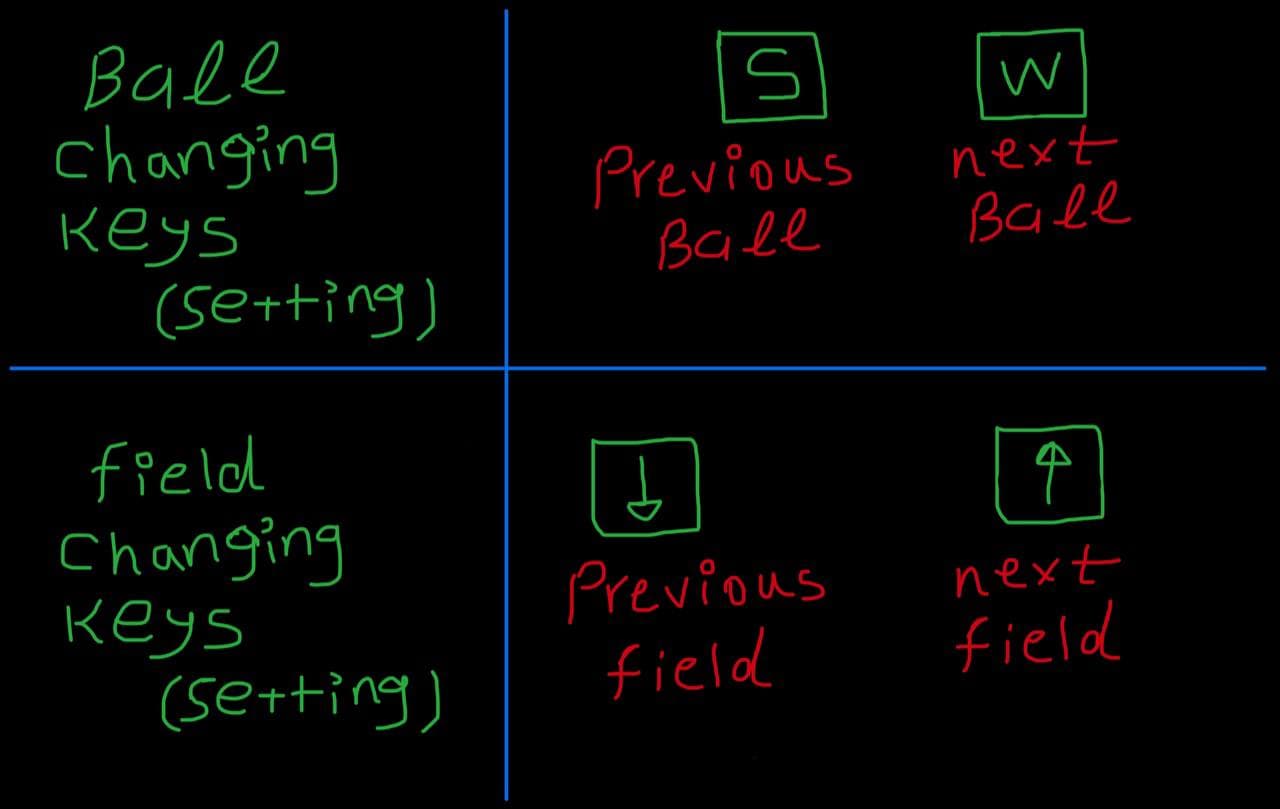 Ball
Changing
Keys
(Setting)
S
W
Previous
Ball
next
Ball
field
Changing
Keys
(Setting)
↓
↑
Previous
field
next
field